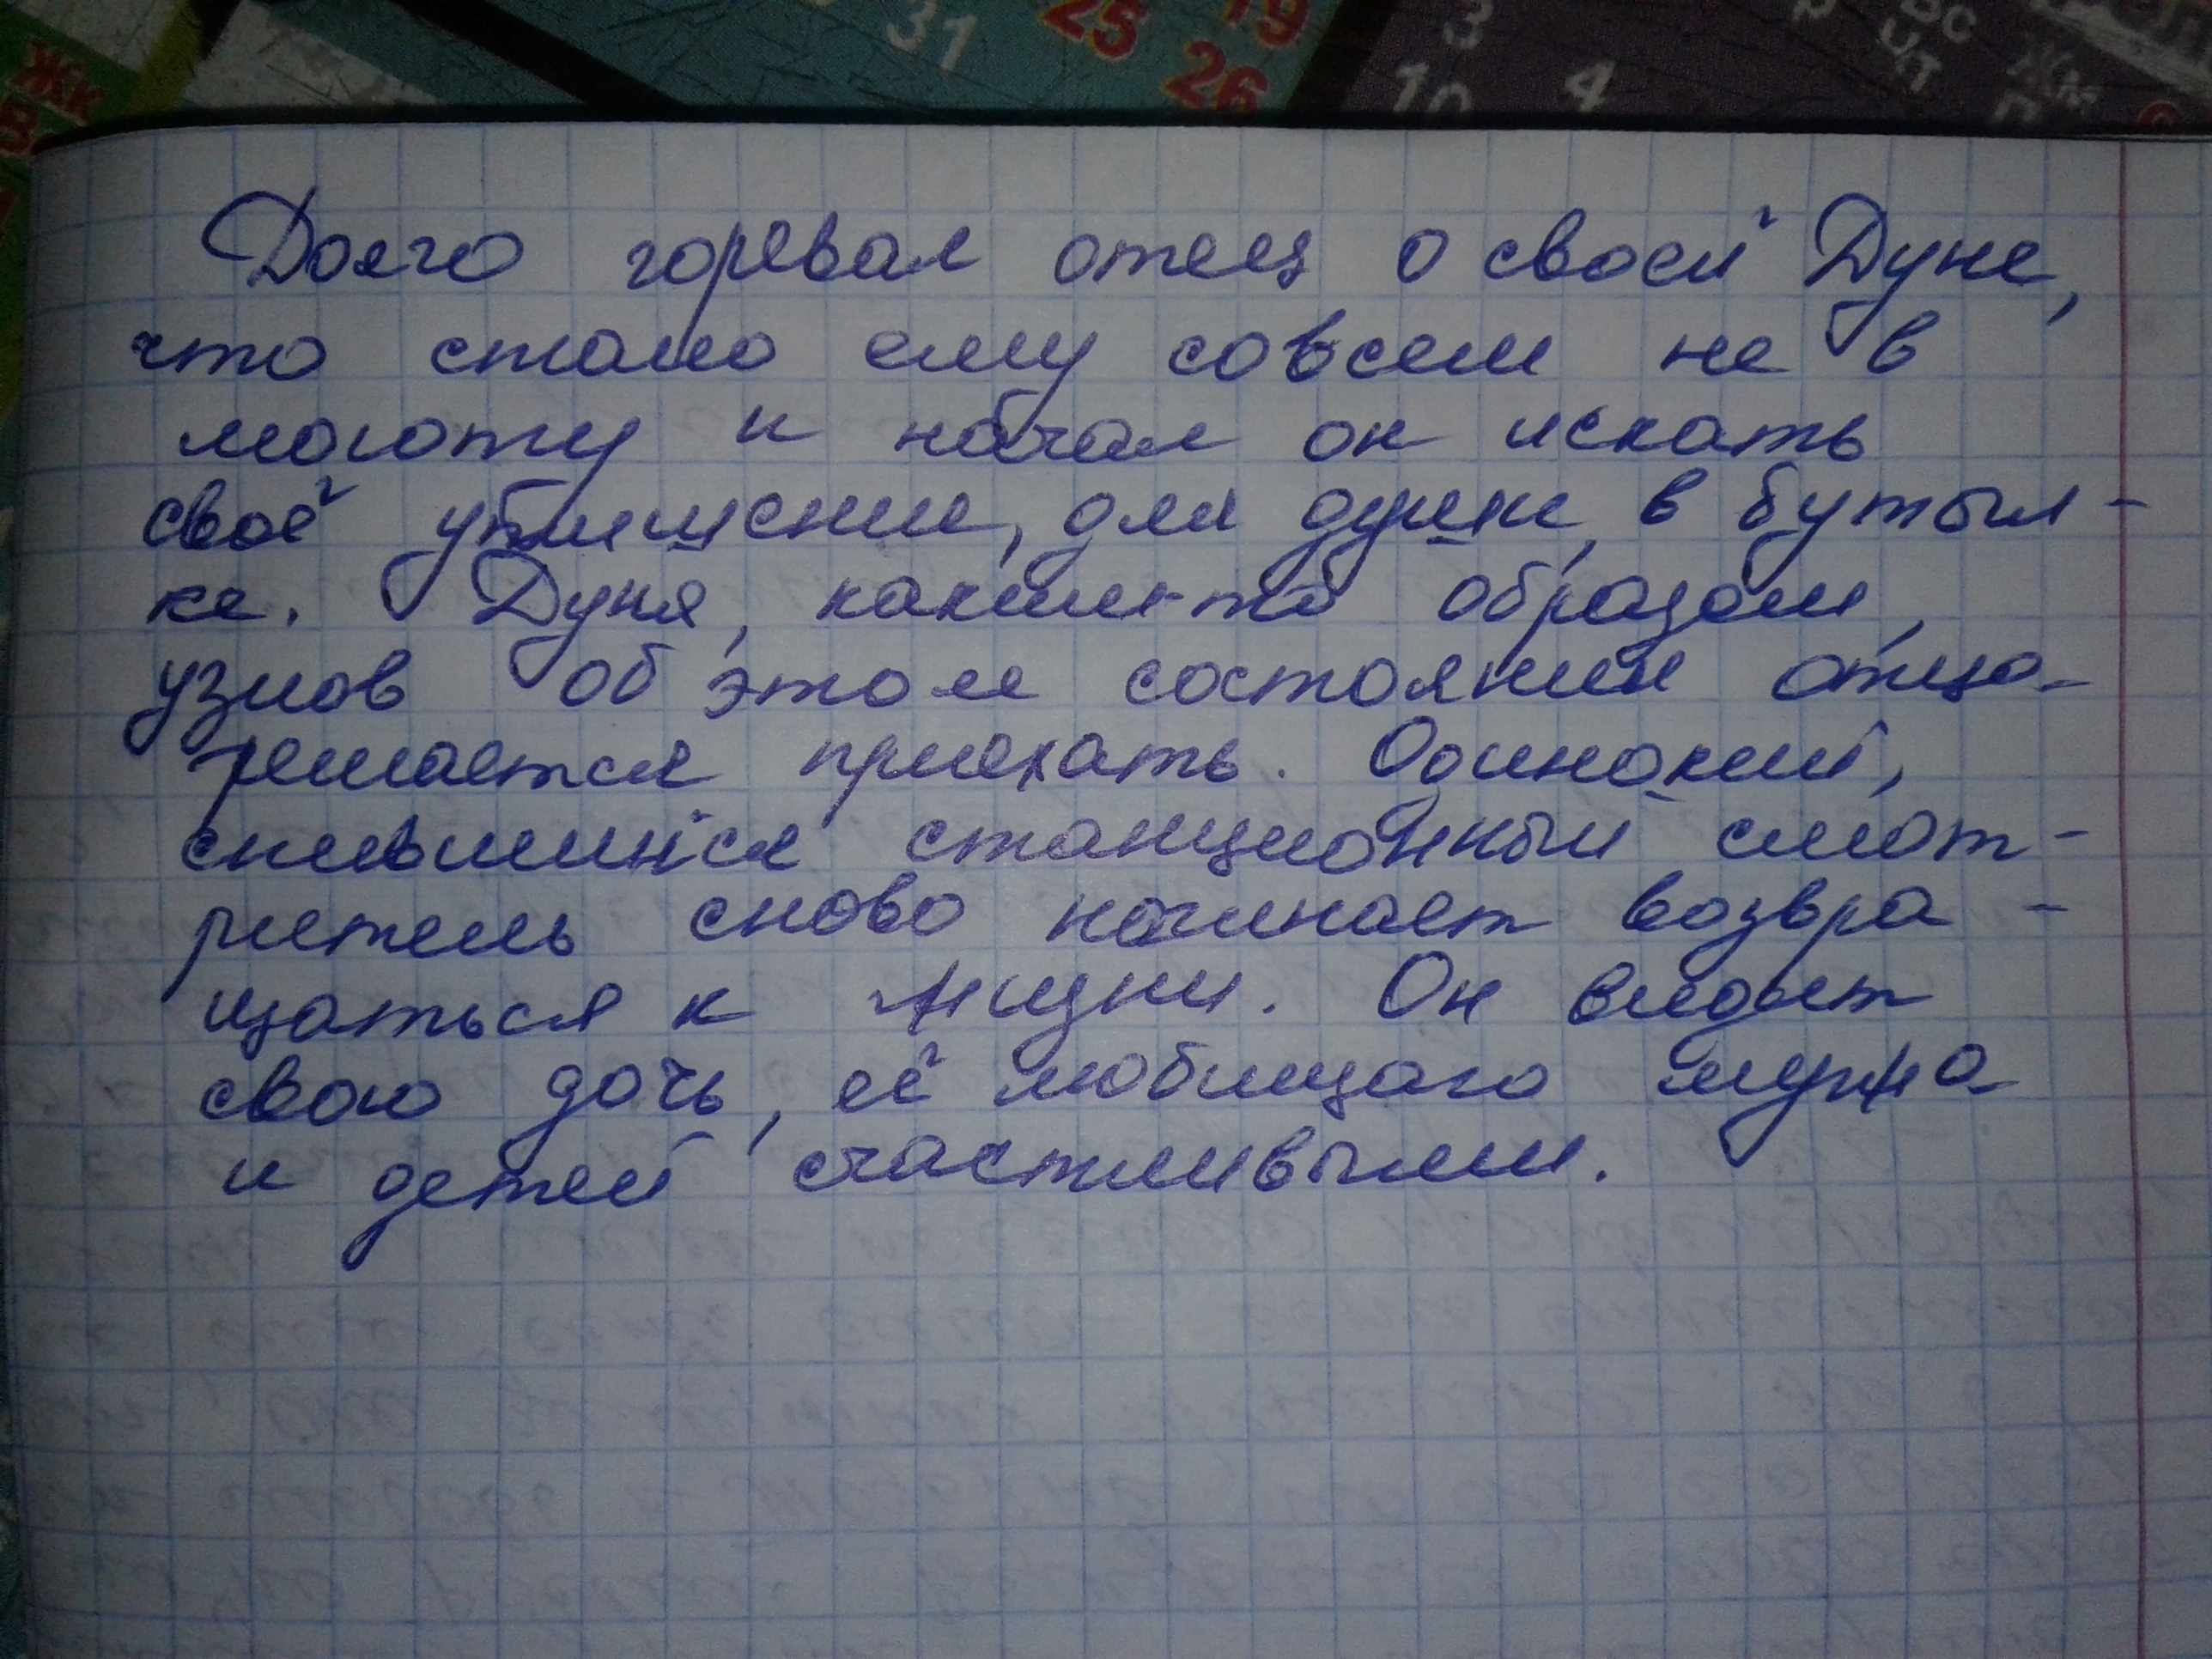 31 25 19 26
3 10 4
ВС ЧТ
Долго горевал отец о своей Дуне,
что стало ему совсем не в
моготу и начал он искать
своё утешение, для души, в бутыл-
ке. Дуня, каким-то образом,
узнав об этом состоянии отца-
решается приехать. Одинокий,
спившийся станционный смот-
ритель снова начинает возвра-
щаться к жизни. Он видет
свою дочь, её любящего мужа
и детей счастливыми.